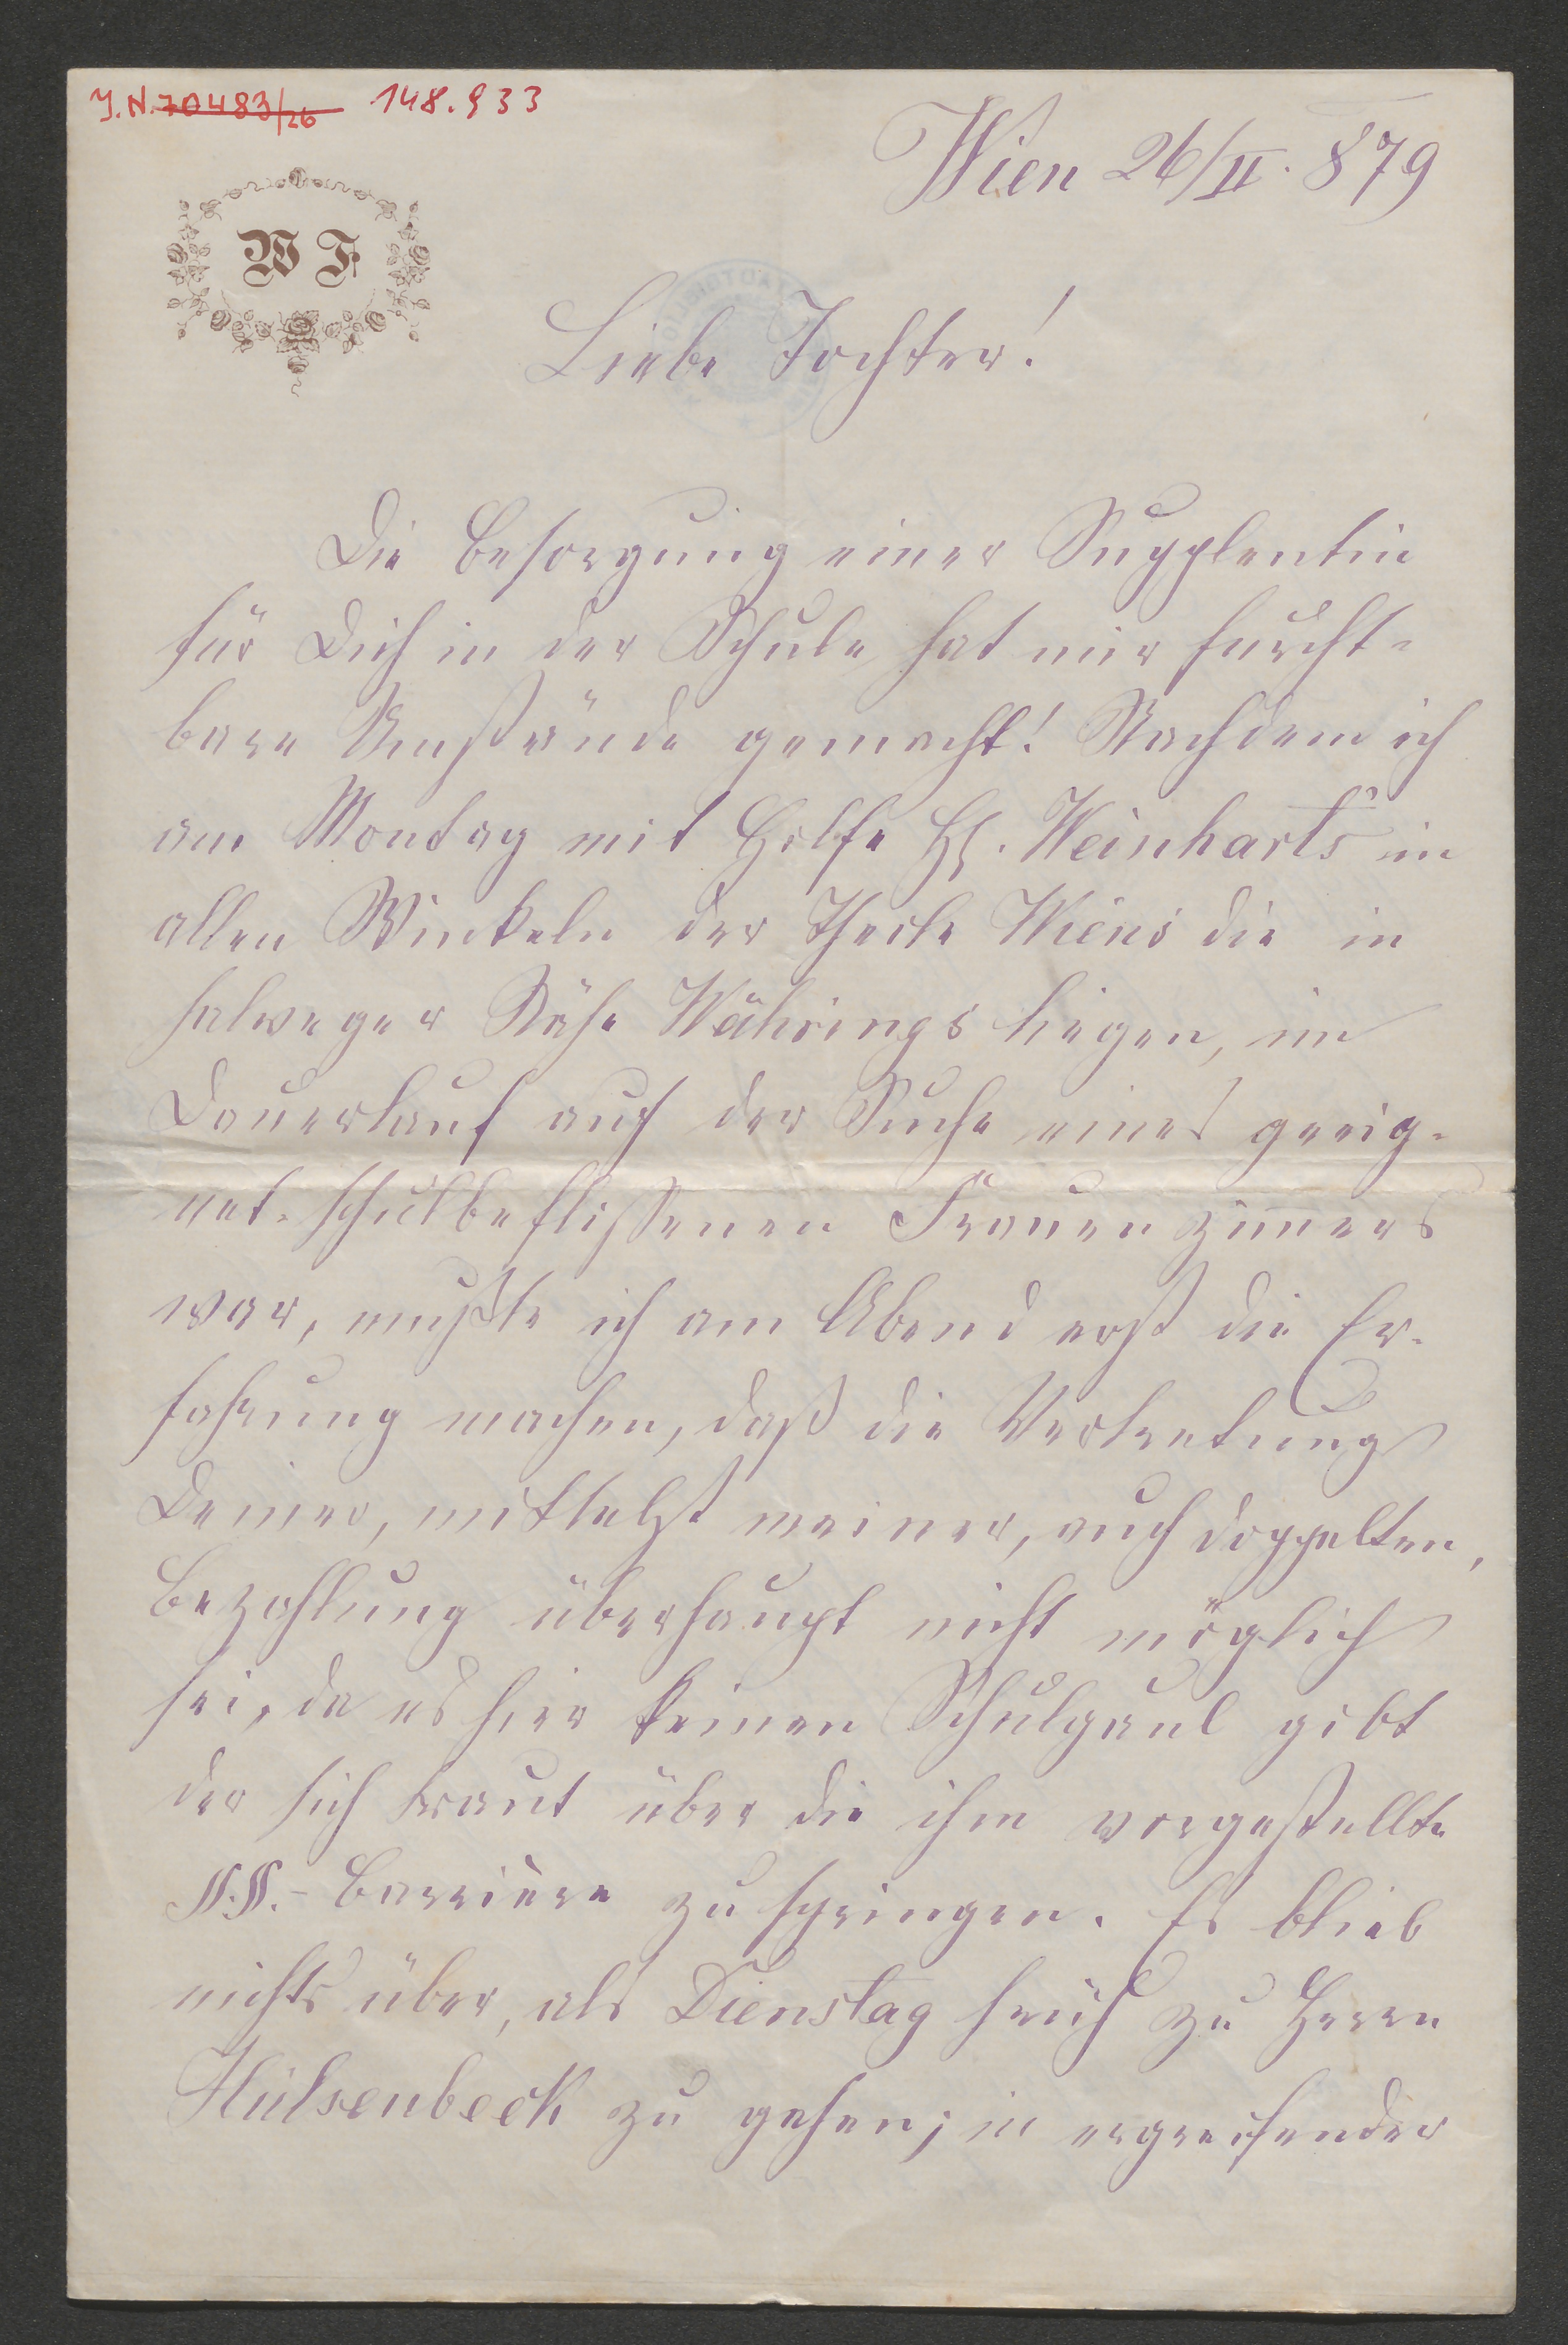 J.N. 70483/26 148.933
Wien 26/II. 879
W F
Liebe Tochter!
Die Besorgung einer Supplentin
für Dich in der Schule hat mir furcht-
bare Umstände gemacht! Nachdem ich
am Montag mit Hilfe H. Weinharts in
allen Winkeln der Theile Wiens die in
halweger Nähe Währings liegen, im
Dauerlauf auf der Suche eines geeig-
net-schulbeflissenen Frauenzimers
war, mußte ich am Abend erst die Er-
fahrung machen, daß die Vertretung
Deiner, mittelst meiner, auch doppelten,
Bezahlung überhaupt nicht möglich
sei, da es hier keinen Schulgaul gibt
der sich traut über die ihm vorgestellte
§§.-Barrière zu springen. Es blieb
nichts über, als Dienstag früh zu Herrn
Hülsenbeck zu gehen; in ergreifender